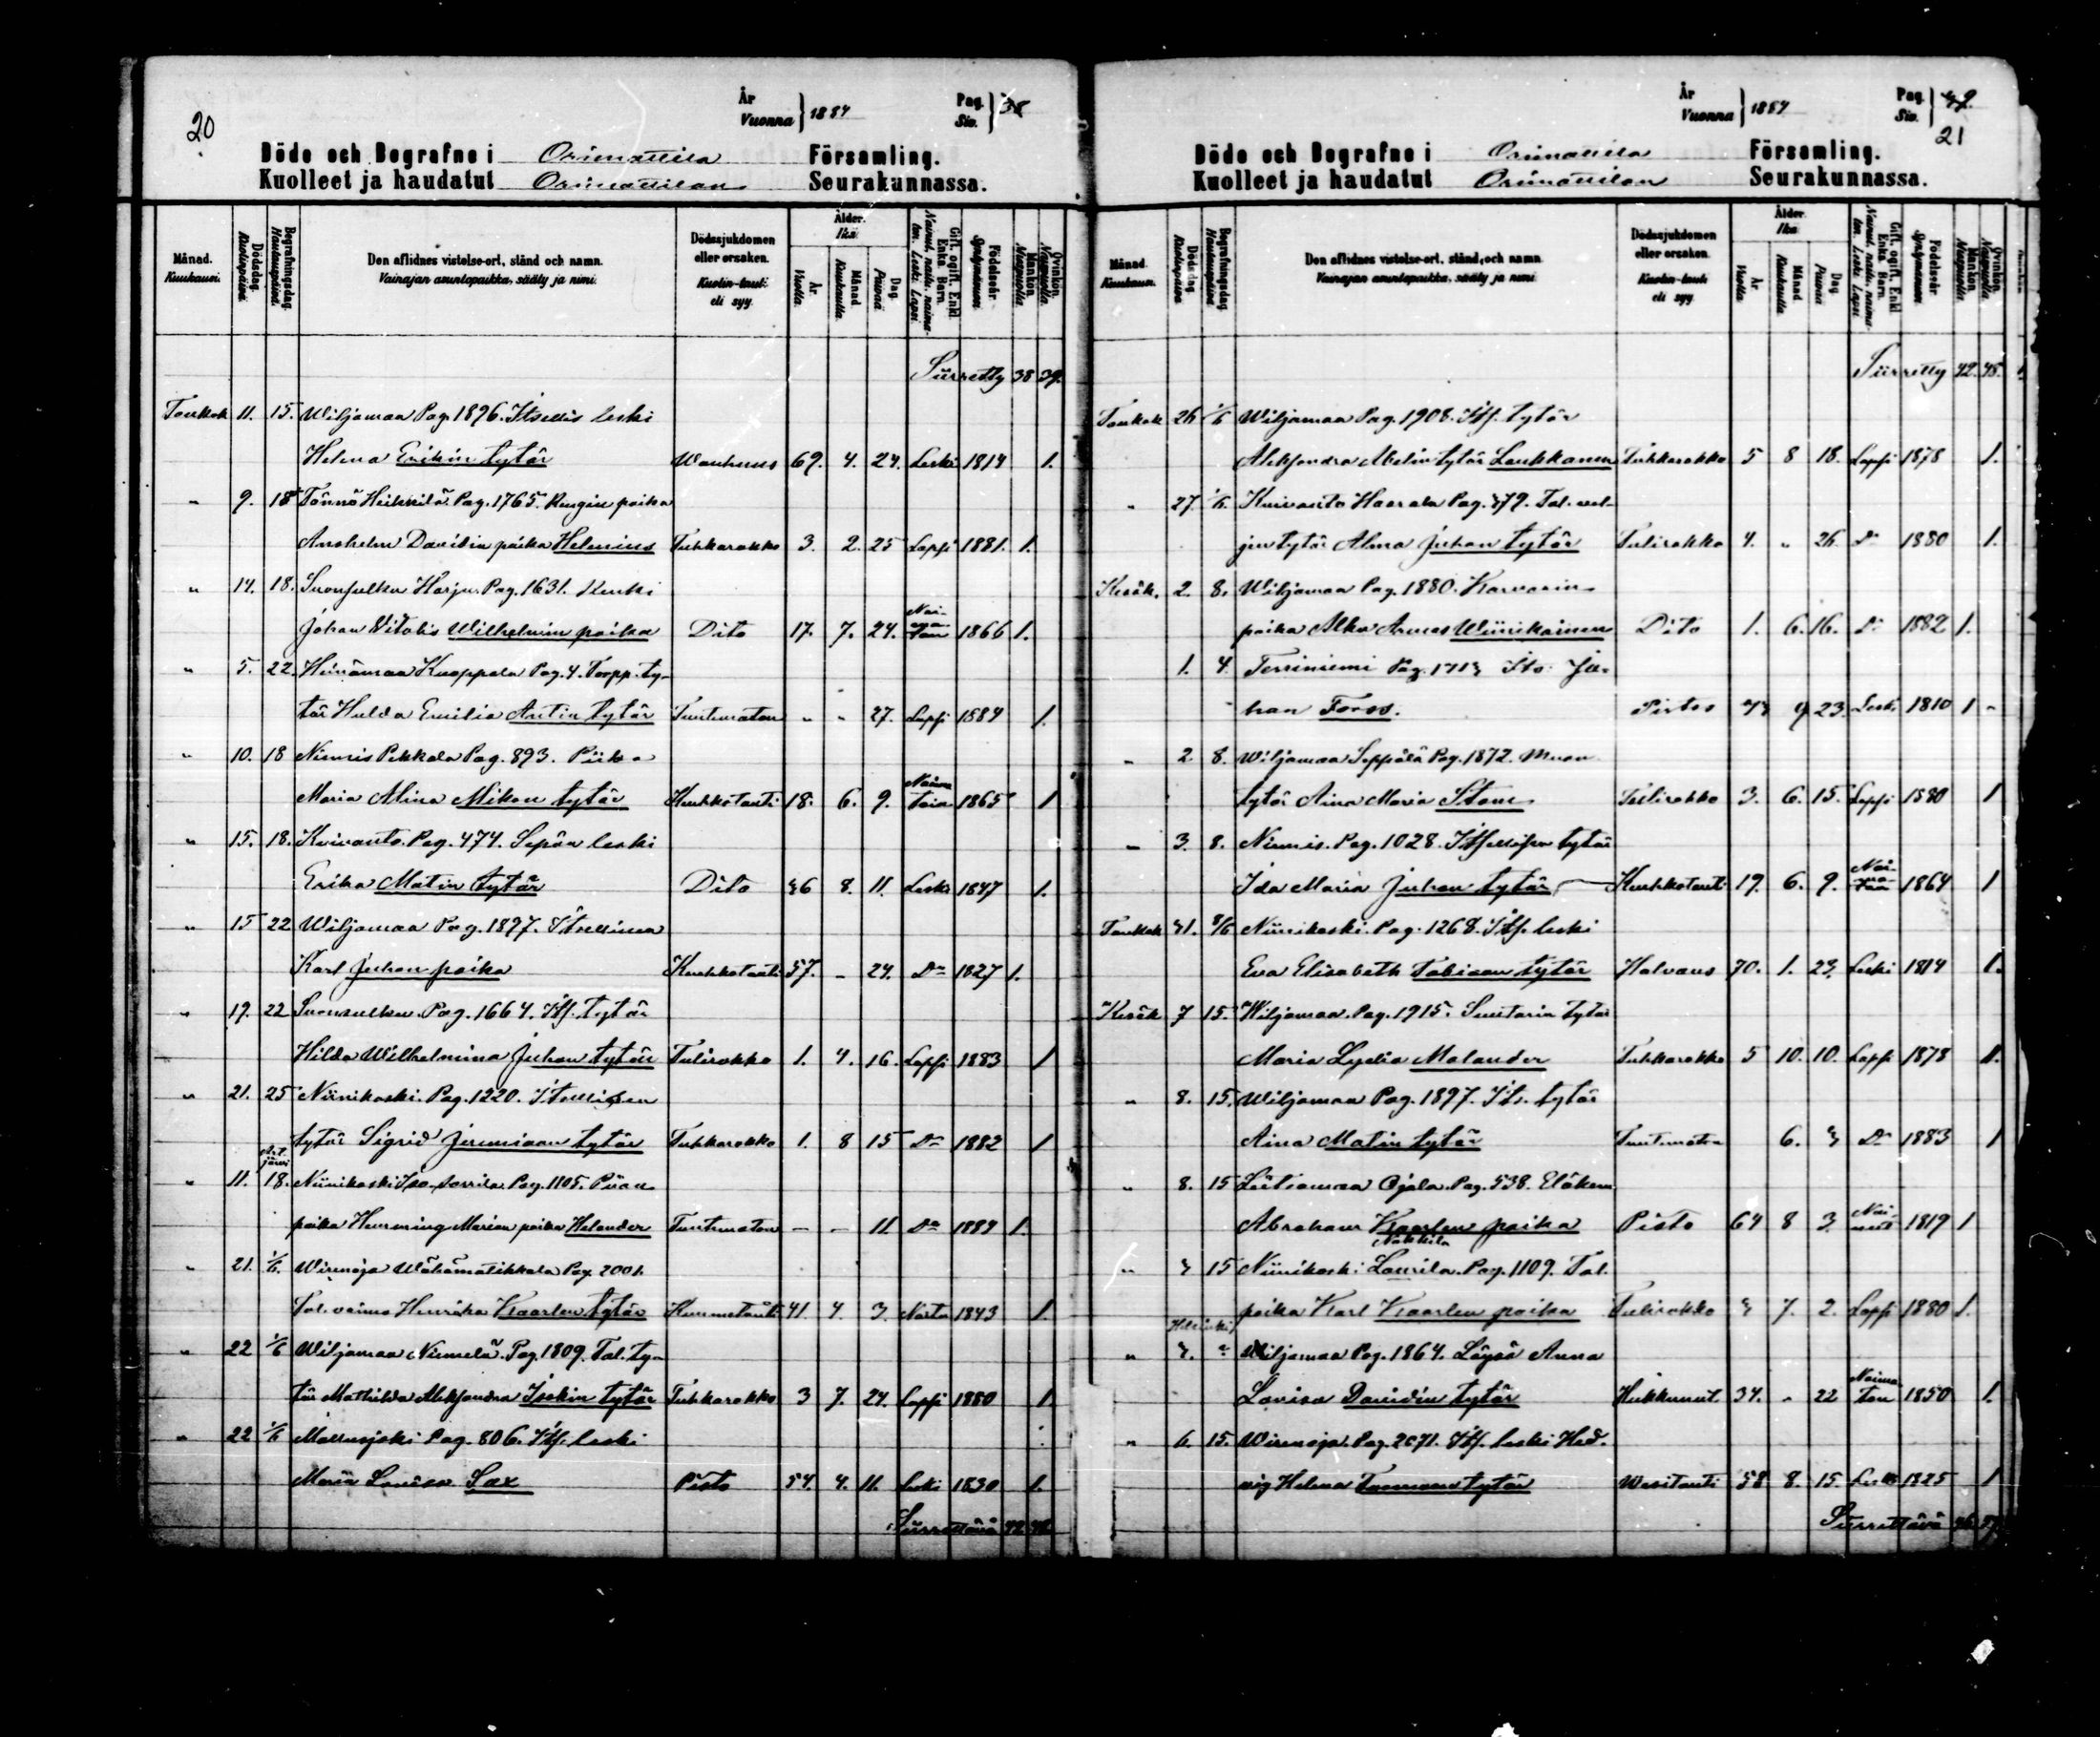 20
År
Vuonna } 1884
Pag.
Siv. } 38
Döde och Begrafne i Orimattila Församling.
Kuolleet ja haudatut Orimattilan Seurakunnassa.
Månad. Kuukausi.
Dödsdag. Kuolinpäivä.
Begrafningsdag. Hautauspäivä.
Den aflidnes vistelse-ort, stånd och namn.
Vainajan asuntopaikka, sääty ja nimi.
Dödssjukdomen eller orsaken.
Kuolin-tauti eli syy.
Ålder. Ikä
År Vuotta.
Månad Kuukautta.
Dag. Päivää
Gift, ogift, Enkl. Enka Barn.
Nainut, naitu, naimaton, Leski. Lapsi
Födelseår. Syntymävuosi.
Mankön. Miespuolia.
Qvinkön. Naispuolia.
Siirretty 38 39.
Toukok. 11. 15. Wiljamaa Pag. 1896. Itsellis leski
Helena Erikin tytär Wanhuus 69. 4. 24. Leski 1814 1.
" 9. 18 Tönnö Heikkilä Pag. 1765. Rengin poika
Anshelm Davidin poika Helenius Tuhkarokko 3. 2. 25 Lapsi 1881. 1.
" 14. 18. Suonsulku Harju Pag. 1631. Renki
Johan Vitalis Wilhelmin poika Dito 17. 7. 24. Naimaton 1866 1.
" 5. 22. Heinämaa Knoppala Pag. 4. Torpp. ty-
tär Hulda Emilia Antin tytär Tuntematon " " 27. Lapsi 1884 1.
" 10. 18 Niemis Pekkala Pag. 893. Piika
Maria Alina Mikon tytär Keuhkotauti 18. 6. 9. Naimatoin 1865 1
" 15. 18. Koivanto. Pag. 474. Sepän leski
Erika Matin tytär Dito 36 8. 11. Leski 1847 1.
" 15 22 Wiljamaa Pag. 1897. Itsellinen
Karl Juhan poika Keuhkotauti 57. - 24. Do 1827 1.
" 19. 22 Suonsulku. Pag. 1664. Its. tytär
Hilda Wilhelmina Juhan tytär Tulirokko 1. 4. 16. Lapsi 1883 1
" 21. 25 Niinikoski. Pag. 1220. Itsellisen
tytär Sigrid Jeremiaan tytär Tuhkarokko 1. 8 15 Do 1882 1
Artjärvi
" 11. 18. Niinikoski Iso-Sorrila. Pag. 1105. Piian
poika Hemming Marian poika Helander Tuntematon - - 11. Do 1884 1.
" 21. 1/6. Wirenoja Wähämatikkala Pag. 2001.
Tal. vaimo Henrika Kaarlen tytär Kuumetauti 41. 4. 3. Naitu 1843 1.
" 22 1/6 Wiljamaa Niemelä. Pag. 1809. Tal. ty-
tär Mathilda Aleksandra Isakin tytär Tuhkarokko 3 7. 24. Lapsi 1880 1.
" 22 1/6 Mallusjoki Pag. 806. Its. leski
Maria Lovisa Sax Pisto 54. 4. 11. Leski 1830 1.
Siirrettävä 42 48
År
Vuonna } 1884
Pag.
Siv. }
21
Döde och Begrafne i Orimattila Församling.
Kuolleet ja haudatut Orimattilan Seurakunnassa.
Månad. Kuukausi.
Dödsdag Kuolinpäivä
Begrafningsdag. Hautauspäivä
Den aflidnes vistelse-ort, stånd och namn.
Vainajan asuntopaikka, sääty ja nimi.
Dödssjukdomen eller orsaken.
Kuolin-tauti eli syy.
Ålder. Ikä
År Vuotta.
Månad Kuukautta.
Dag Päivää
Gift, ogift, Enkl. Enka Barn.
Nainut, naitu, naimaton, Leski. Lapsi
Födelseår Syntymävuosi.
Mankön. Miespuolia.
Qvinkön. Naispuolia.
Siirretty 42. 48.
Toukok 26 1/6 Wiljamaa Pag. 1908. Its. tytär
Aleksandra Abelin tytär Laukkanen Tuhkarokko 5 8 18. Lapsi 1878 1.
" 27 1/6. Koivanto Haarala Pag. 379. Tal. vel-
jen tytär Alma Juhan tytär Tulirokko 4. " 26. Do 1880 1.
Kesäk. 2. 8. Wiljamaa Pag. 1880. Karvarin
poika Alko Armas Wiinikainen Dito 1. 6. 16. Do 1882 1.
1. 4. Terriniemi Pag. 1713 Its. Ju-
han Forss. Pistos 73 9 23. Leski 1810 1 -
" 2 8. Wiljamaa Seppälä Pag. 1872. Muon
tytär Aina Maria Stam Tulirokko 3. 6. 15. Lapsi 1880 1
" 3. 8. Niemis. Pag. 1028. Itsellisen tytär
Ida Maria Juhan tytär Keuhkotauti 19. 6. 9. Naimatoin 1864 1
Toukok 31. 8/6 Niinikoski. Pag. 1268. Its. leski
Eva Elisabeth Tobiaan tytär Halvaus 70. 1. 23. Leski 1814 1.
Kesäk 7 15. Wiljamaa. Pag. 1915. Suutarin tytär
Maria Lydia Malander Tuhkarokko 5 10. 10. Lapsi 1878 1.
" 8. 15. Wiljamaa Pag. 1897. Its. tytär
Aina Matin tytär Tuntematon 6. 3 Do 1883 1
" 8. 15 Luhtiamaa Ojala. Pag. 538. Eläkem.
Abraham Kaarlen poika Pisto 64 8 3. Nainut 1819 1
Nokkila
" 3 15 Niinikoski Laurila. Pag. 1109. Tal.
poika Karl Kaarlen poika Tulirokko 3 7. 2. Lapsi 1880 1.
Helsinki
" 3. " Wiljamaa Pag. 1864. Löysä Anna
Lovisa Davidin tytär Hukkunut. 34. " 22 Naimaton 1850 1.
" 6. 15. Wirenoja. Pag. 2071. Its. leski Hed-
vig Helena Tuomaan tytär Wesitauti 58 8. 15. Leski 1825 1
Siirrettävä